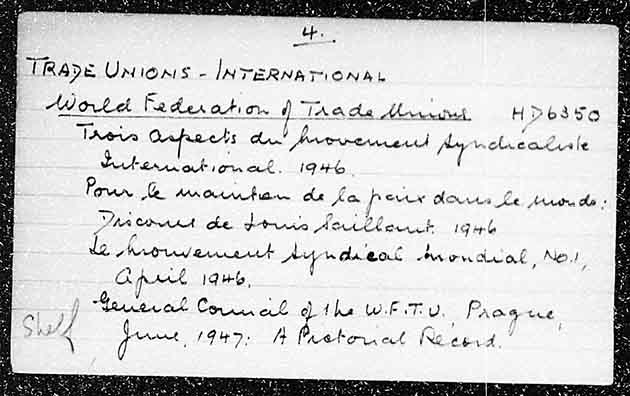 4.
TRADE UNIONS - INTERNATIONAL
World Federation of Trade Unions HD6350
Trois aspects du mouvement syndicaliste
International. 1946.
Pour le maintien de la paix dans le monde:
Discours de Louis Saillant. 1946
Le mouvement syndical mondial, No.1,
April 1946.
General Council of the W.F.T.U. Prague,
June, 1947: A Pictorial Record.
Shelf